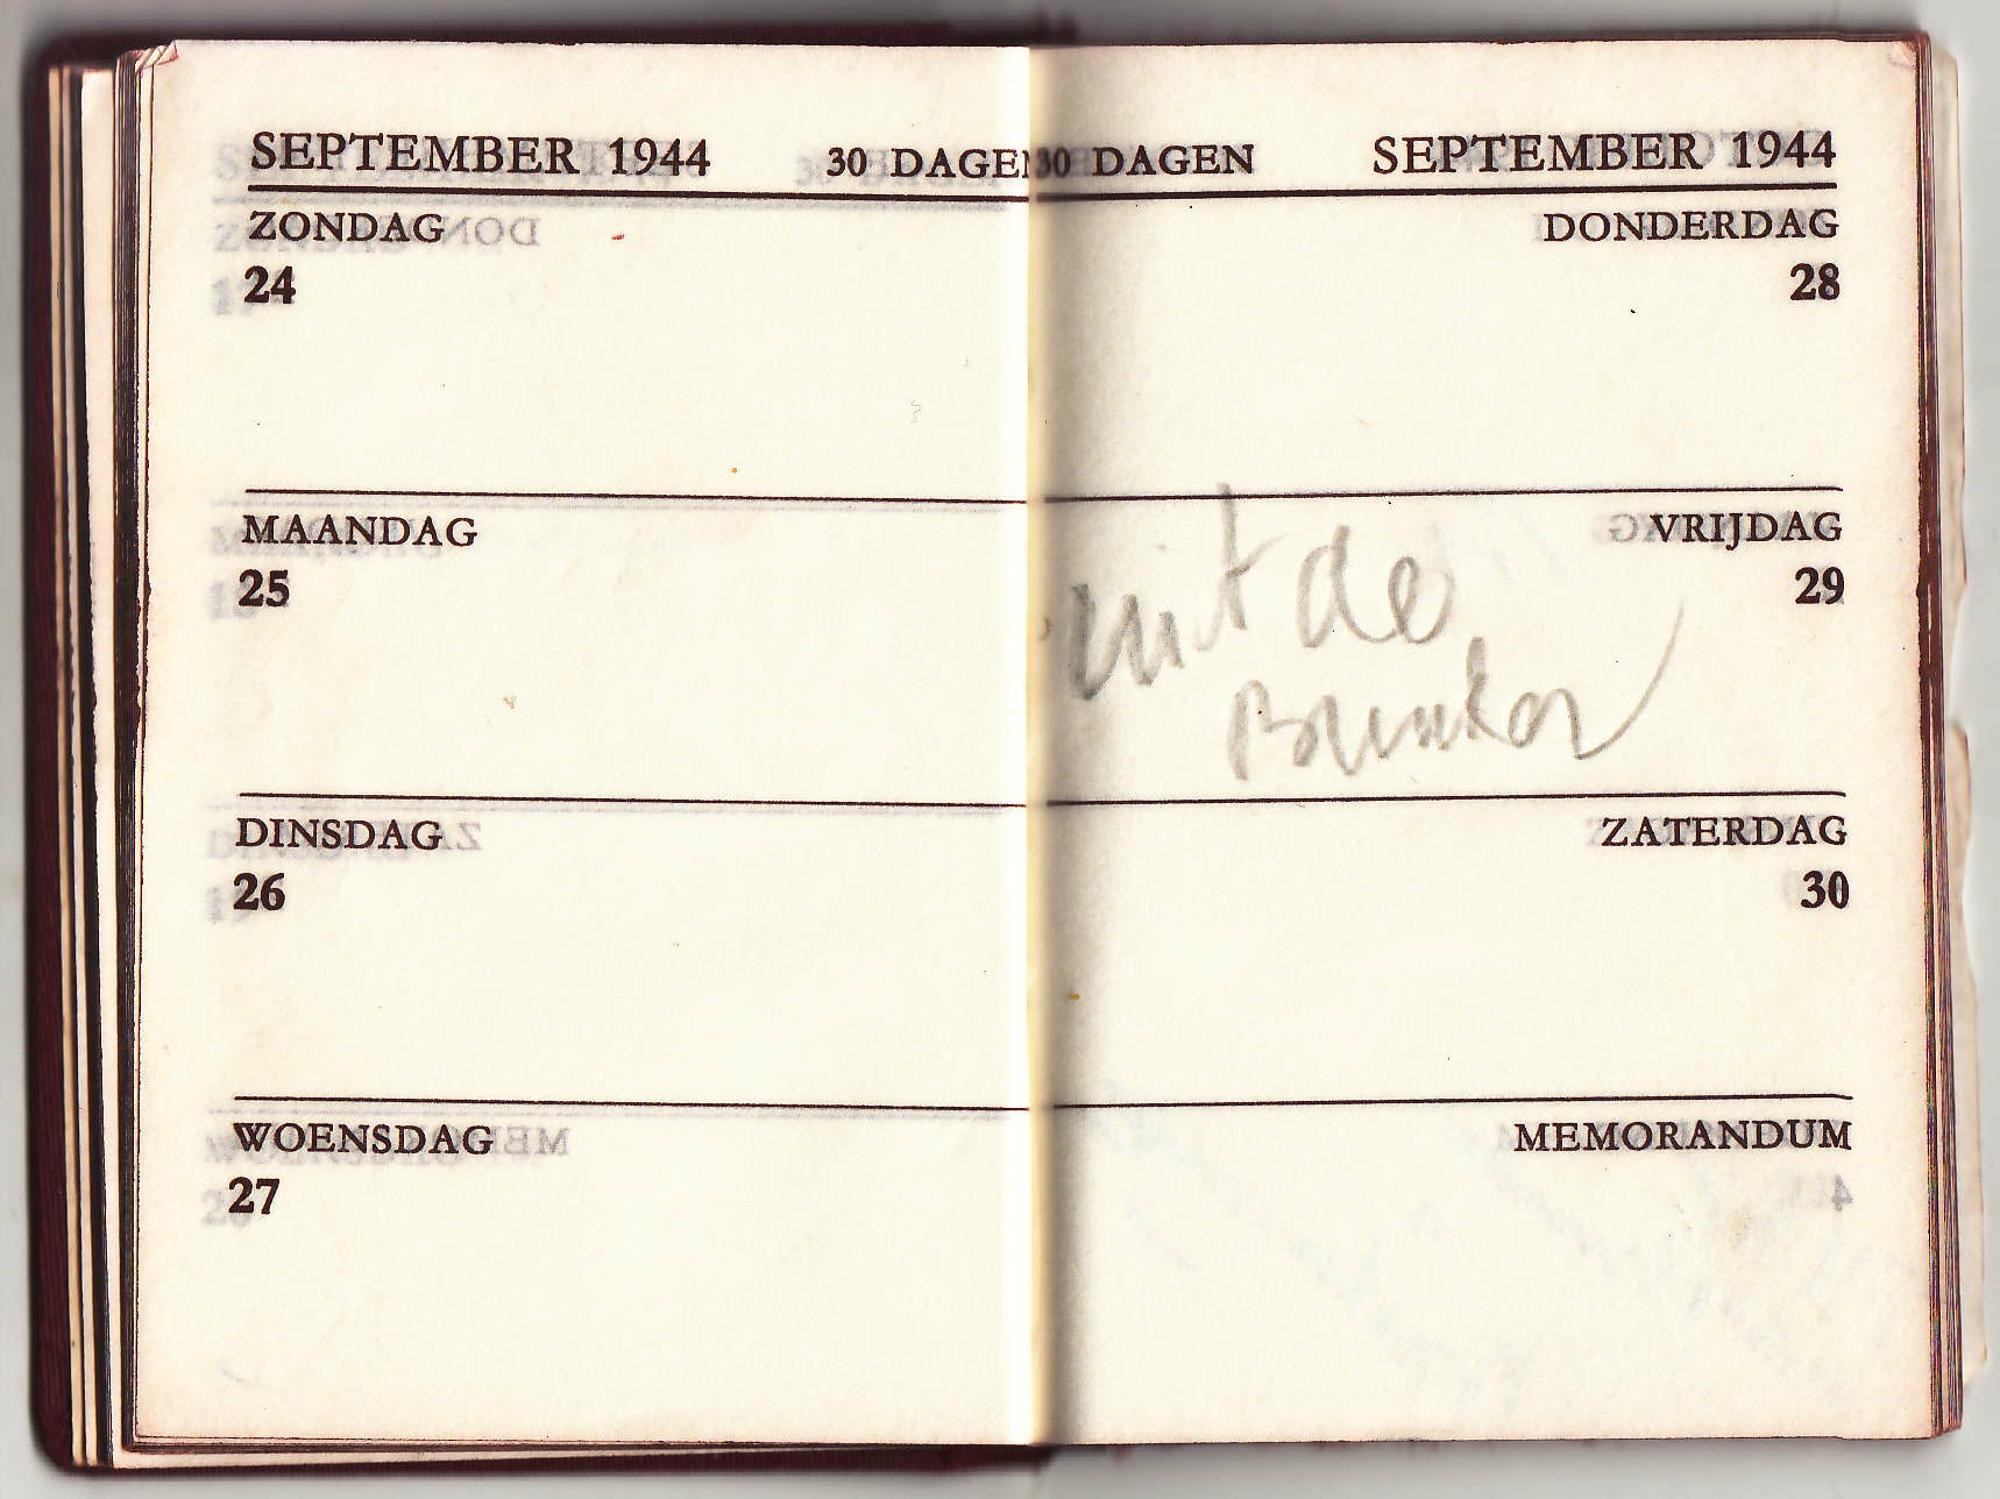 SEPTEMBER 1944 30 DAGEN
ZONDAG
24
MAANDAG
25
DINSDAG
26
WOENSDAG
27
30 DAGEN SEPTEMBER 1944
DONDERDAG
28
VRIJDAG
29
uit de
Bunker
ZATERDAG
30
MEMORANDUM